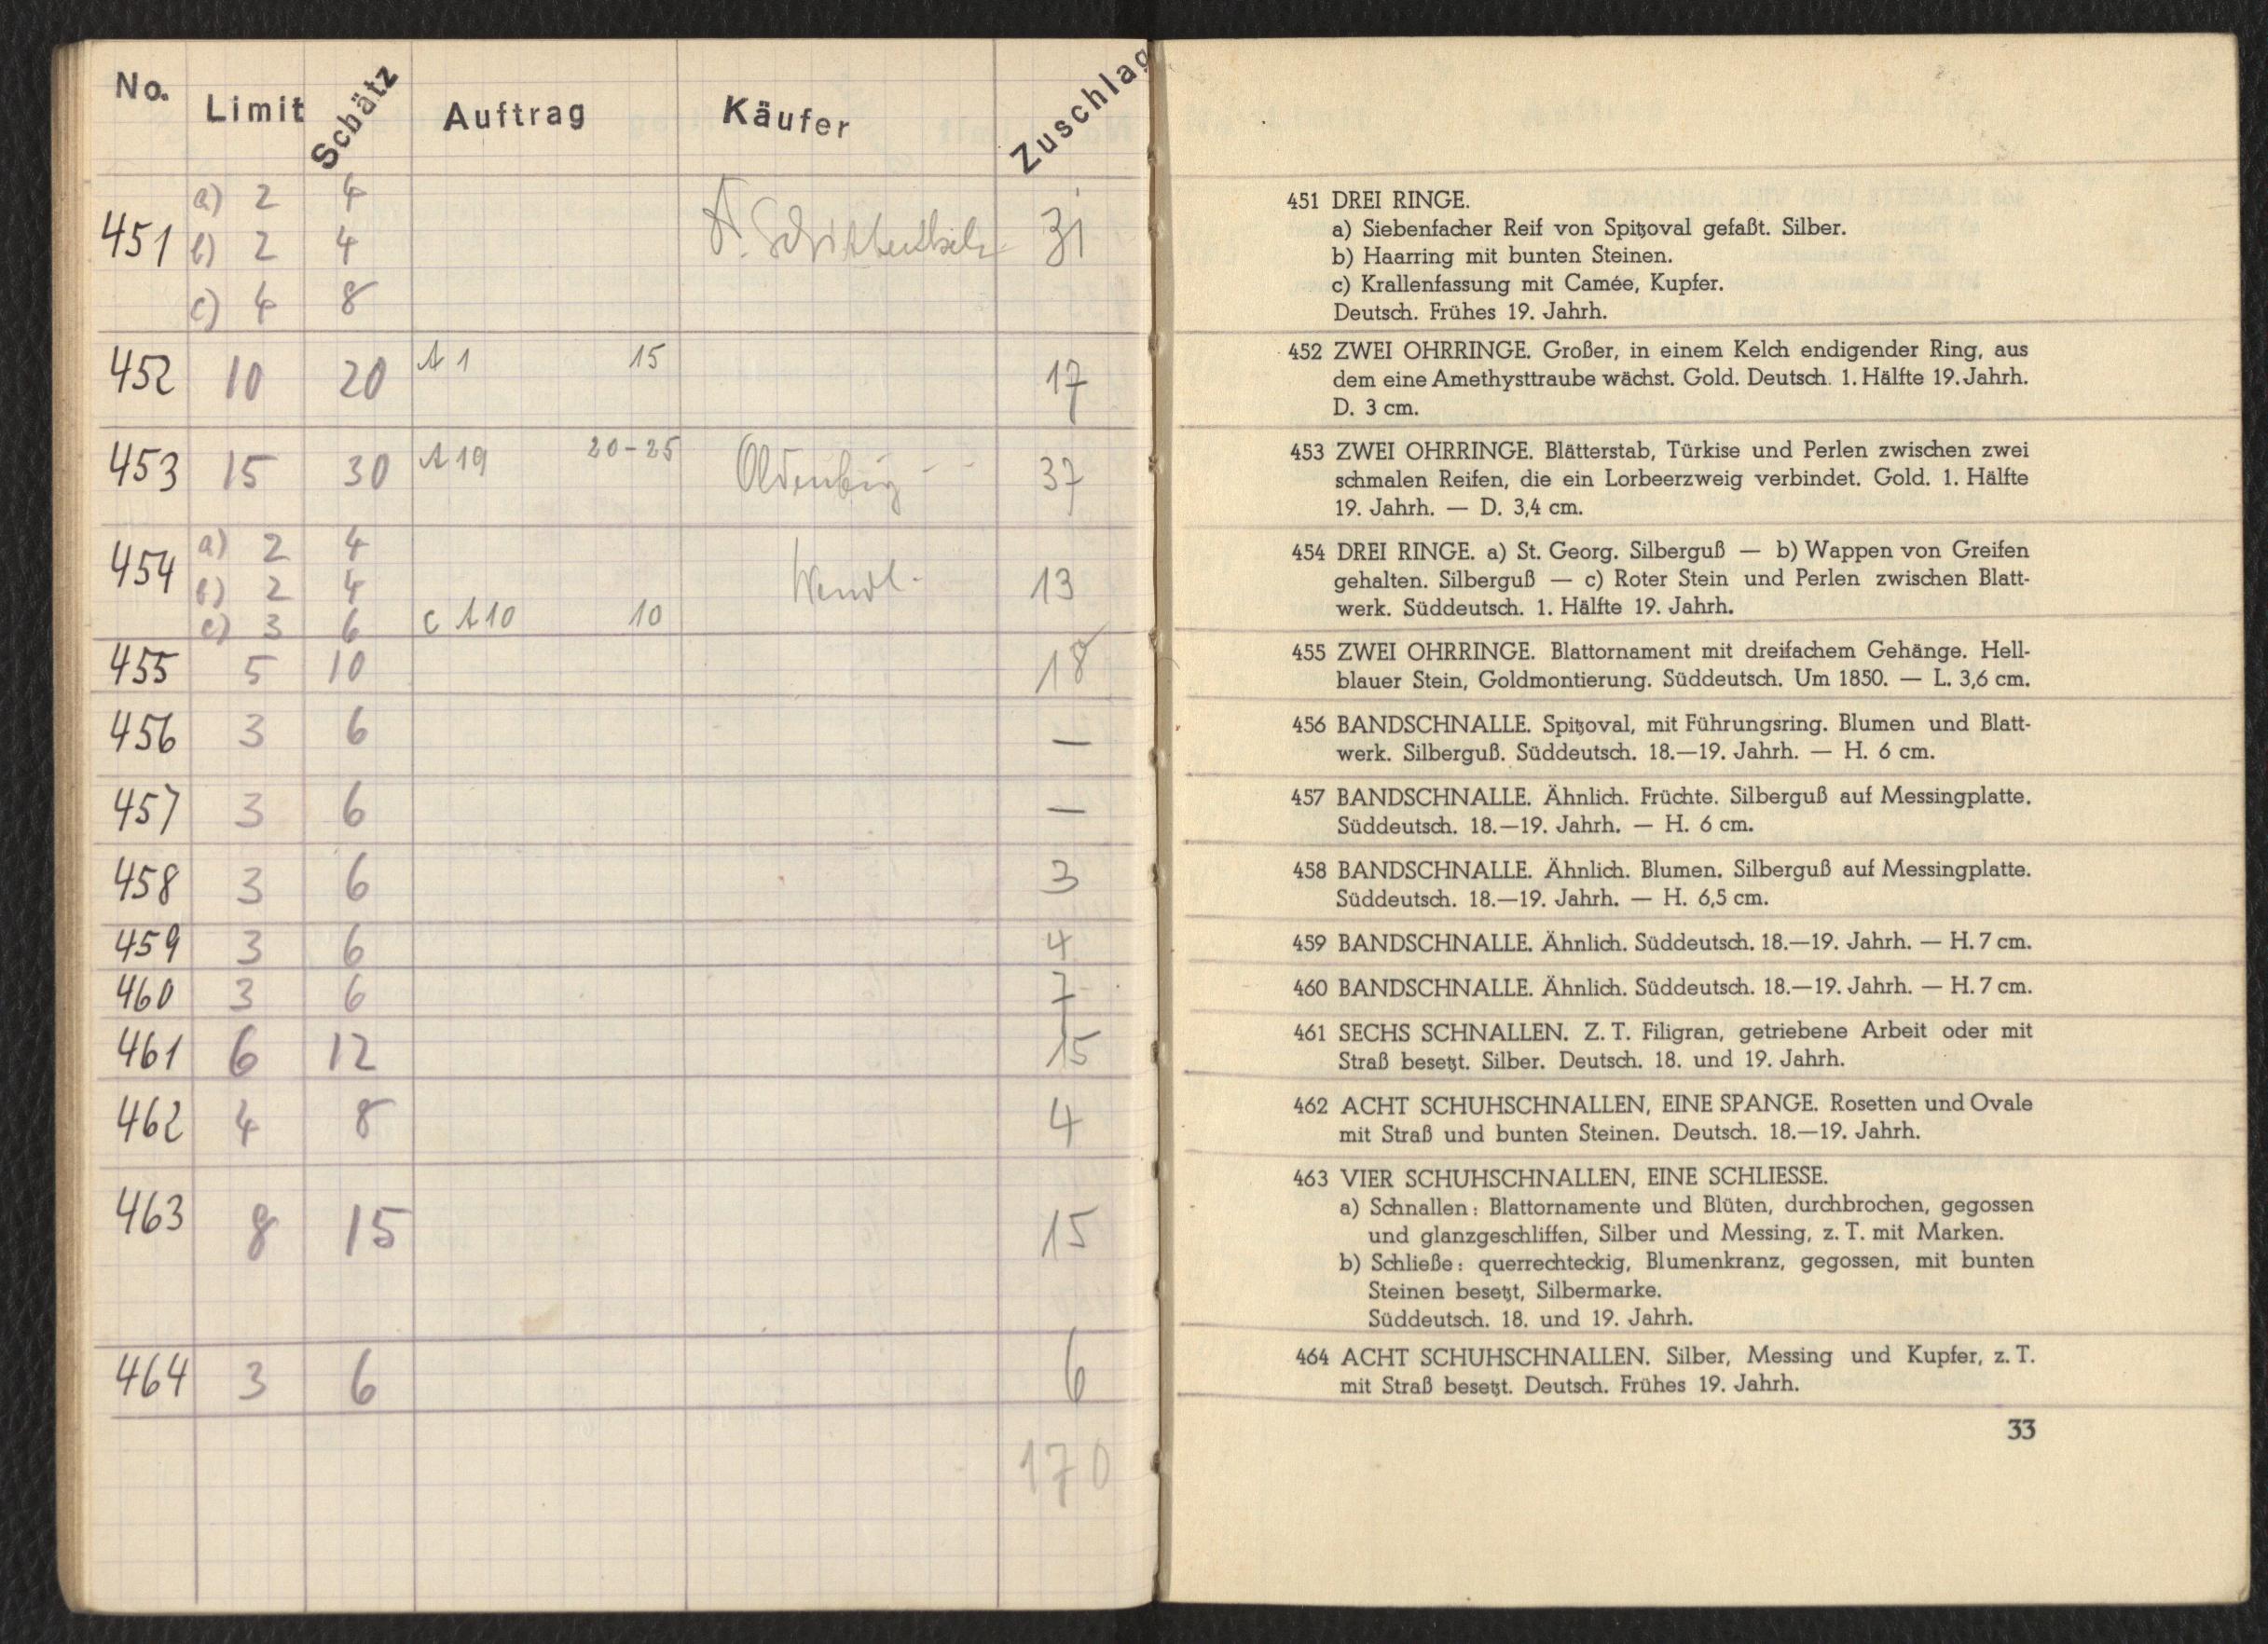 No. Limit Schätz Auftrag Käufer Zuschlag
a) 2 4
451 b) 2 4 31
c) 4 8
452 10 20 A 1 15 17
453 15 30 A 19 20-25 Oldenburg 37
a) 2 4
454 b) 2 4 Wendl. 13
c) 3 6 c A 10 10
455 5 10 18
456 3 6 —
457 3 6 —
458 3 6 3
459 3 6 4
460 3 6 7
461 6 12 15
462 4 8 4
463 8 15 15
464 3 6 6
170
451 DREI RINGE.
a) Siebenfacher Reif von Spitzoval gefaßt. Silber.
b) Haarring mit bunten Steinen.
c) Krallenfassung mit Camée, Kupfer.
Deutsch. Frühes 19. Jahrh.
452 ZWEI OHRRINGE. Großer, in einem Kelch endigender Ring, aus
dem eine Amethysttraube wächst. Gold. Deutsch. 1. Hälfte 19. Jahrh.
D. 3 cm.
453 ZWEI OHRRINGE. Blätterstab, Türkise und Perlen zwischen zwei
schmalen Reifen, die ein Lorbeerzweig verbindet. Gold. 1. Hälfte
19. Jahrh. — D. 3,4 cm.
454 DREI RINGE. a) St. Georg. Silberguß — b) Wappen von Greifen
gehalten. Silberguß — c) Roter Stein und Perlen zwischen Blatt-
werk. Süddeutsch. 1. Hälfte 19. Jahrh.
455 ZWEI OHRRINGE. Blattornament mit dreifachem Gehänge. Hell-
blauer Stein, Goldmontierung. Süddeutsch. Um 1850. — L. 3,6 cm.
456 BANDSCHNALLE. Spitzoval, mit Führungsring. Blumen und Blatt-
werk. Silberguß. Süddeutsch. 18.—19. Jahrh. — H. 6 cm.
457 BANDSCHNALLE. Ähnlich. Früchte. Silberguß auf Messingplatte.
Süddeutsch. 18.—19. Jahrh. — H. 6 cm.
458 BANDSCHNALLE. Ähnlich. Blumen. Silberguß auf Messingplatte.
Süddeutsch. 18.—19. Jahrh. — H. 6,5 cm.
459 BANDSCHNALLE. Ähnlich. Süddeutsch. 18.—19. Jahrh. — H. 7 cm.
460 BANDSCHNALLE. Ähnlich. Süddeutsch. 18.—19. Jahrh. — H. 7 cm.
461 SECHS SCHNALLEN. Z. T. Filigran, getriebene Arbeit oder mit
Straß besetzt. Silber. Deutsch. 18. und 19. Jahrh.
462 ACHT SCHUHSCHNALLEN, EINE SPANGE. Rosetten und Ovale
mit Straß und bunten Steinen. Deutsch. 18.—19. Jahrh.
463 VIER SCHUHSCHNALLEN, EINE SCHLIESSE.
a) Schnallen: Blattornamente und Blüten, durchbrochen, gegossen
und glanzgeschliffen, Silber und Messing, z. T. mit Marken.
b) Schließe: querrechteckig, Blumenkranz, gegossen, mit bunten
Steinen besetzt, Silbermarke.
Süddeutsch. 18. und 19. Jahrh.
464 ACHT SCHUHSCHNALLEN. Silber, Messing und Kupfer, z. T.
mit Straß besetzt. Deutsch. Frühes 19. Jahrh.
33